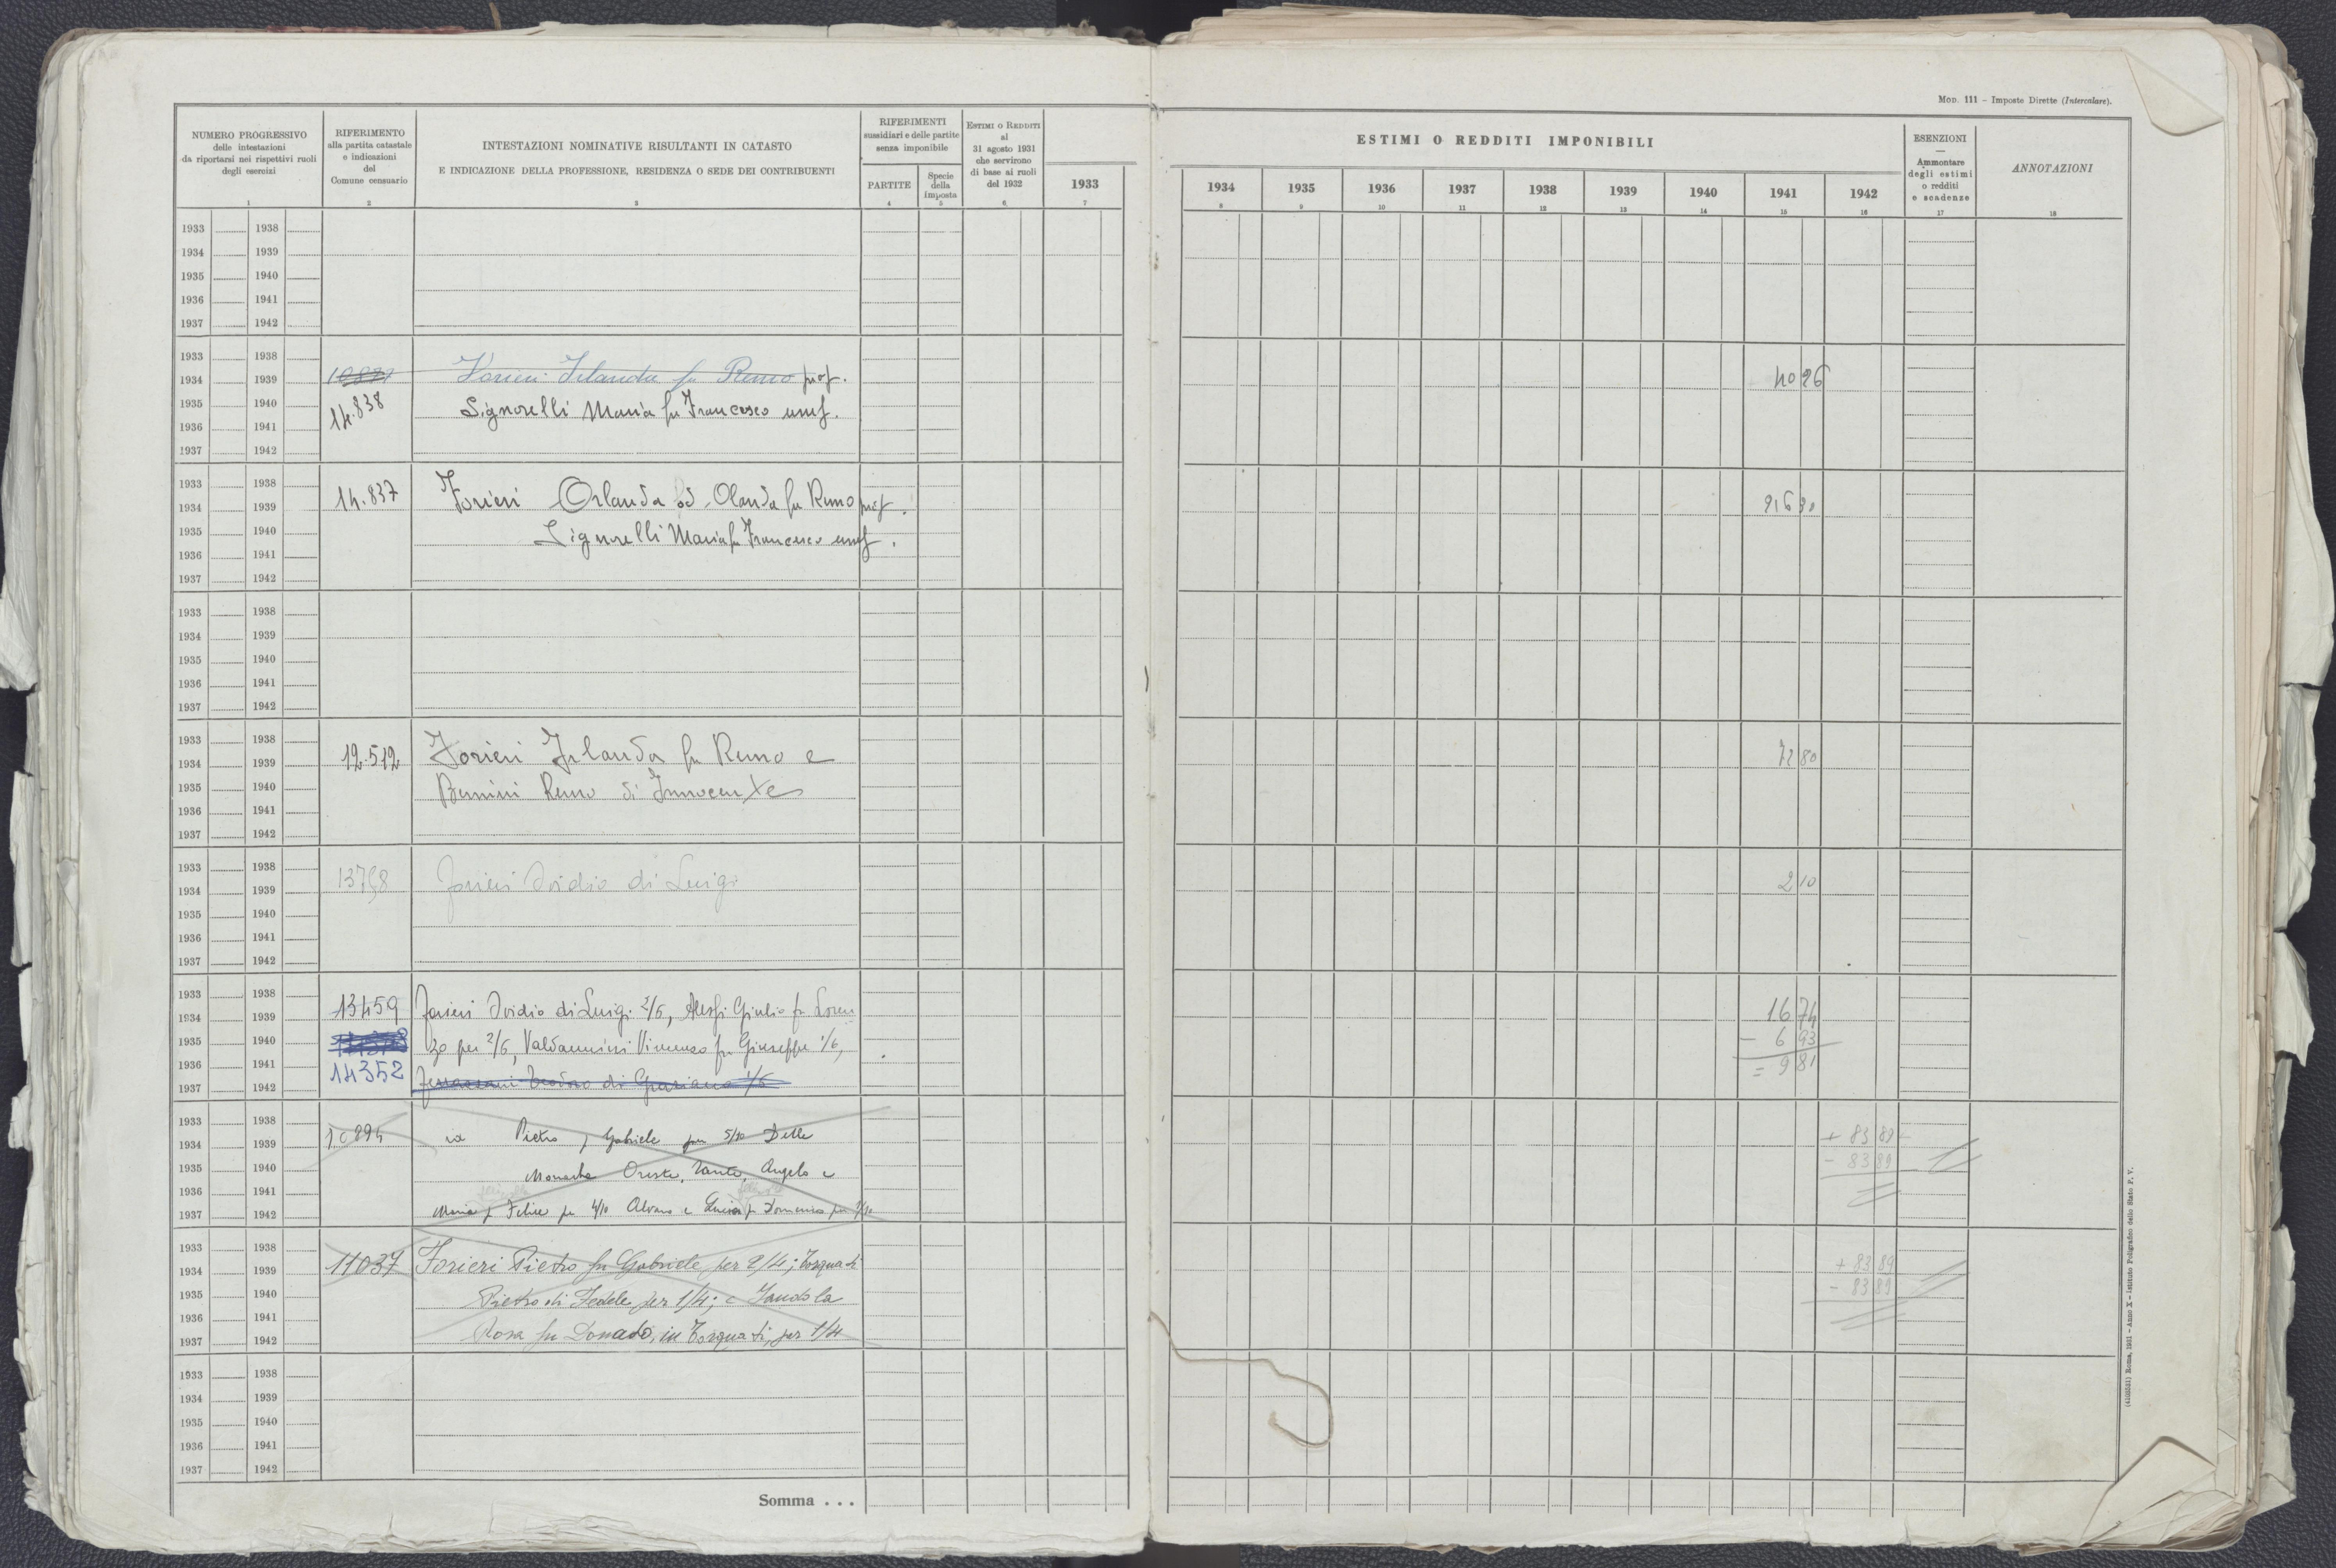 MOD. 111 - Imposte Dirette (Intercalare).
NUMERO PROGRESSIVO
delle intestazioni
da riportarsi nei rispettivi ruoli
degli esercizi
1
RIFERIMENTO
alla partita catastale
e indicazioni
del
Comune censuario
2
INTESTAZIONI NOMINATIVE RISULTANTI IN CATASTO
E INDICAZIONE DELLA PROFESSIONE, RESIDENZA O SEDE DEI CONTRIBUENTI
3
RIFERIMENTI
sussidiari e delle partite
senza imponibile
PARTITE
4
Specie
della
imposta
5
ESTIMI O REDDITI
al
31 agosto 1931
che servirono
di base ai ruoli
del 1932
6
ESTIMI O REDDITI IMPONIBILI
1933 1934 1935 1936 1937 1938 1939 1940 1941 1942
7 8 9 10 11 12 13 14 15 16
ESENZIONI
—
Ammontare
degli estimi
o redditi
e scadenze
17
ANNOTAZIONI
18
1933 1938
1934 1939
1935 1940
1936 1941
1937 1942
1933 1938
1934 1939 Forieri Irlanda fu Remo prop. 40 26
1935 1940 14.838 Signorelli Maria fu Francesco usuf.
1936 1941
1937 1942
1933 1938
1934 1939 14.837 Forieri Orlanda od Olanda fu Remo prop. 216 20
1935 1940 Signorelli Maria fu Francesco usuf.
1936 1941
1937 1942
1933 1938
1934 1939
1935 1940
1936 1941
1937 1942
1933 1938
1934 1939 12.512 Forieri Irlanda fu Remo e 72 80
1935 1940 Bernini Remo di Innocenzo
1936 1941
1937 1942
1933 1938
1934 1939 Forieri Ovidio di Luigi 2 10
1935 1940
1936 1941
1937 1942
1933 1938
1934 1939 13459 Forieri Ovidio di Luigi 2/6, Alessi Giulio fu Loren 16 74
1935 1940 zo per 2/6, Valdannini Vincenzo fu Giuseppe 1/6, - 6 93
1936 1941 14352 = 9 81
1937 1942 di Graziano 1/6
1933 1938
1934 1939 10894 Pietro fu Gabriele per 5/10 Delle + 83 89
1935 1940 Monache Oreste, Sante, Angelo e - 83 89
1936 1941
1937 1942 Maria fu Felice per 4/10 Alvaro e Lucia fu Domenico per 1/10
1933 1938
1934 1939 11037 Forieri Pietro fu Gabriele per 2/4; Torquati + 83 89
1935 1940 Pietro di Fedele per 1/4; e Iandola - 83 89
1936 1941
1937 1942 Rosa fu Donado, in Torquati, per 1/4
1933 1938
1934 1939
1935 1940
1936 1941
1937 1942
Somma . . .